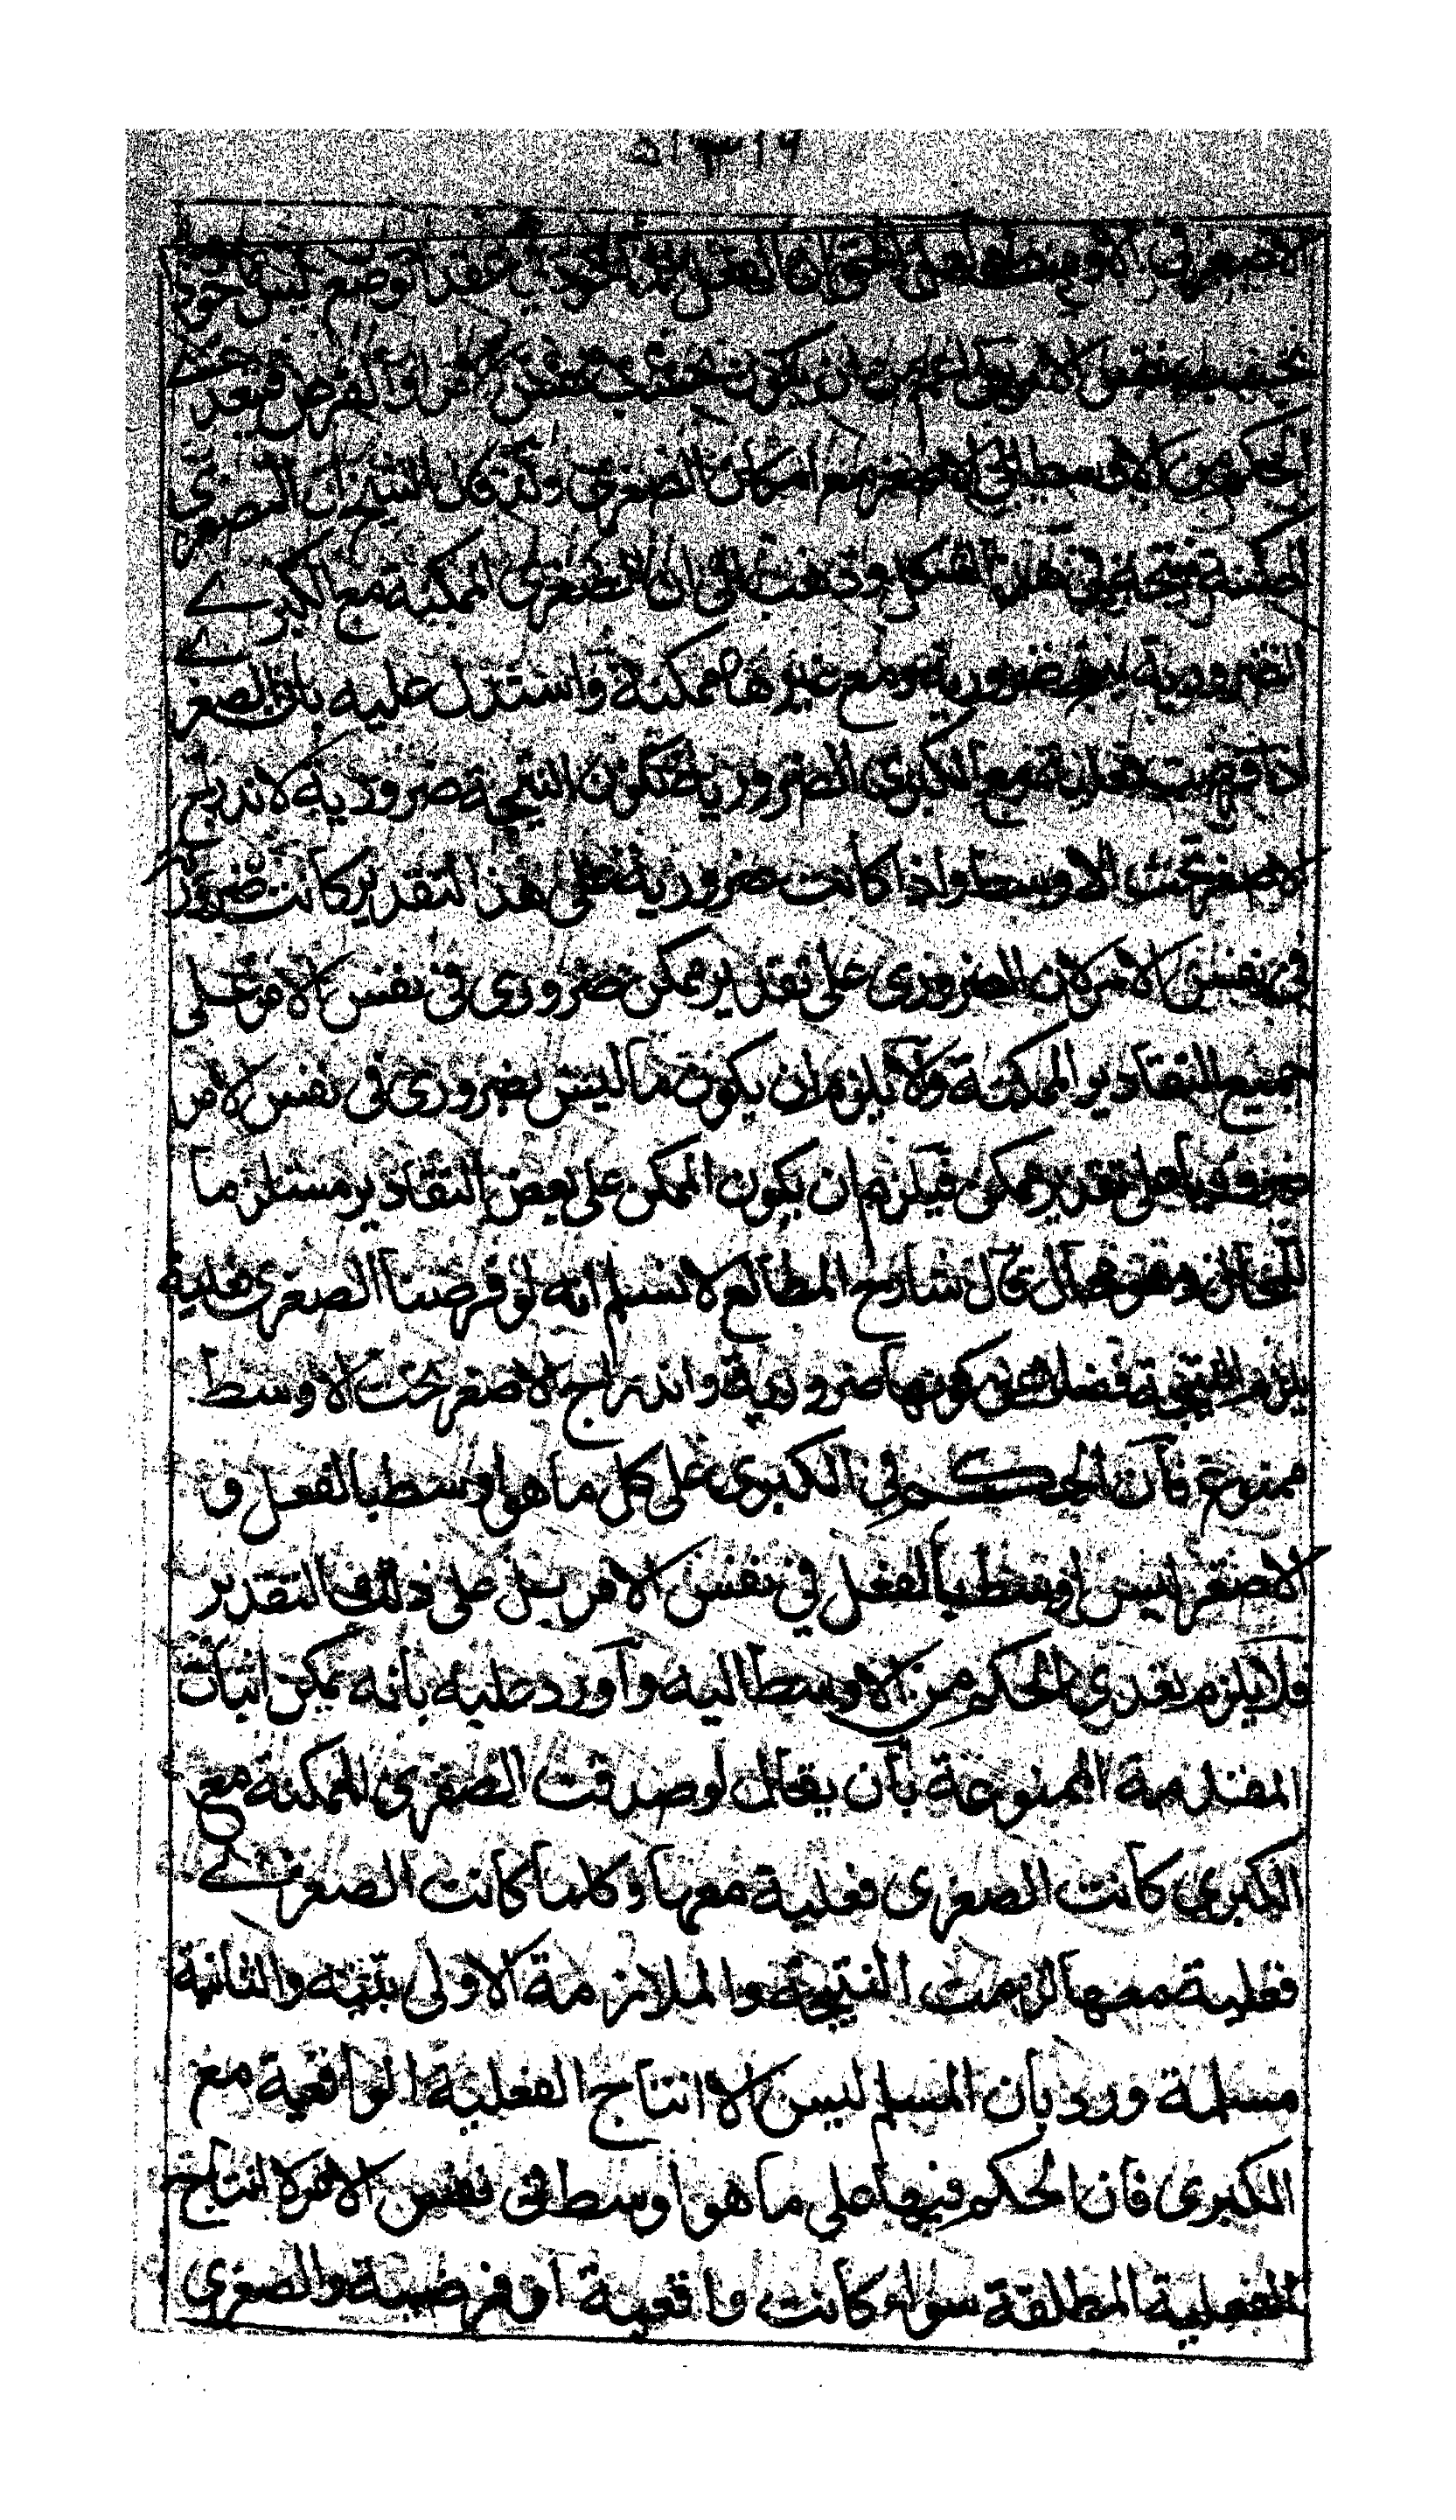 الاصغر في الاوسط فعلى هذا ان الفعل الماخوذ في عقد الوضع ليس ماخوذ
بحسب نفس الامر بل اعم من ان يكون بحسب نفس الامر او الفرض فيتعدى
الحكم من الاوسط الى الاصغر مع امكان الصغرى ولذا قال الشيخ ان الصغرى
الممكنة منتجة في هذا الشكل وذهب الى ان الصغرى الممكنة مع الكبرے
الضرورية ينتج ضرورية ومع غيرها ممكنة واستدل عليه بان الصغرے
اذا فرضت فعلية مع الكبرى الضرورية تكون النتيجة ضرورية لاندراج
الاصغر تحت الاوسط واذا كانت ضرورية على هذا التقدير كانت ضرورية
في نفس الامر لان الضروري على تقدير ممكن ضروري في نفس الامر على
جميع التقادير الممكنة والا يلزم ان يكون ما ليس بضروري في نفس الامر
ضروريا على تقدير ممكن فيلزم ان يكون الممكن على بعض التقادير مستلزما
للمحال وهو محال قال شارح المطالع لا نسلم انه لو فرضنا الصغرى فعلية
يلزم النتيجة فضلا عن كونها ضرورية واندراج الاصغر تحت الاوسط
ممنوع فان الحكم في الكبرى على كل ما هو اوسط بالفعل و
الاصغر ليس اوسط بالفعل في نفس الامر بل على ذلك التقدير
فلا يلزم تعدي الحكم من الاوسط اليه واورد عليه بانه يمكن اثبات
المقدمة الممنوعة بان يقال لو صدقت الصغرى الممكنة مع
الكبرى كانت الصغرى فعلية معها وكلما كانت الصغرے
فعلية معها لزمت النتيجة والملازمة الاولى بينة والثانية
مسلمة ورد بان المسلم ليس الا انتاج الفعلية الواقعية مع
الكبرى فان الحكم فيها على ما هو اوسط في نفس الامر لا انتاج
الفعلية المطلقة سواء كانت واقعية او فرضية والصغرى